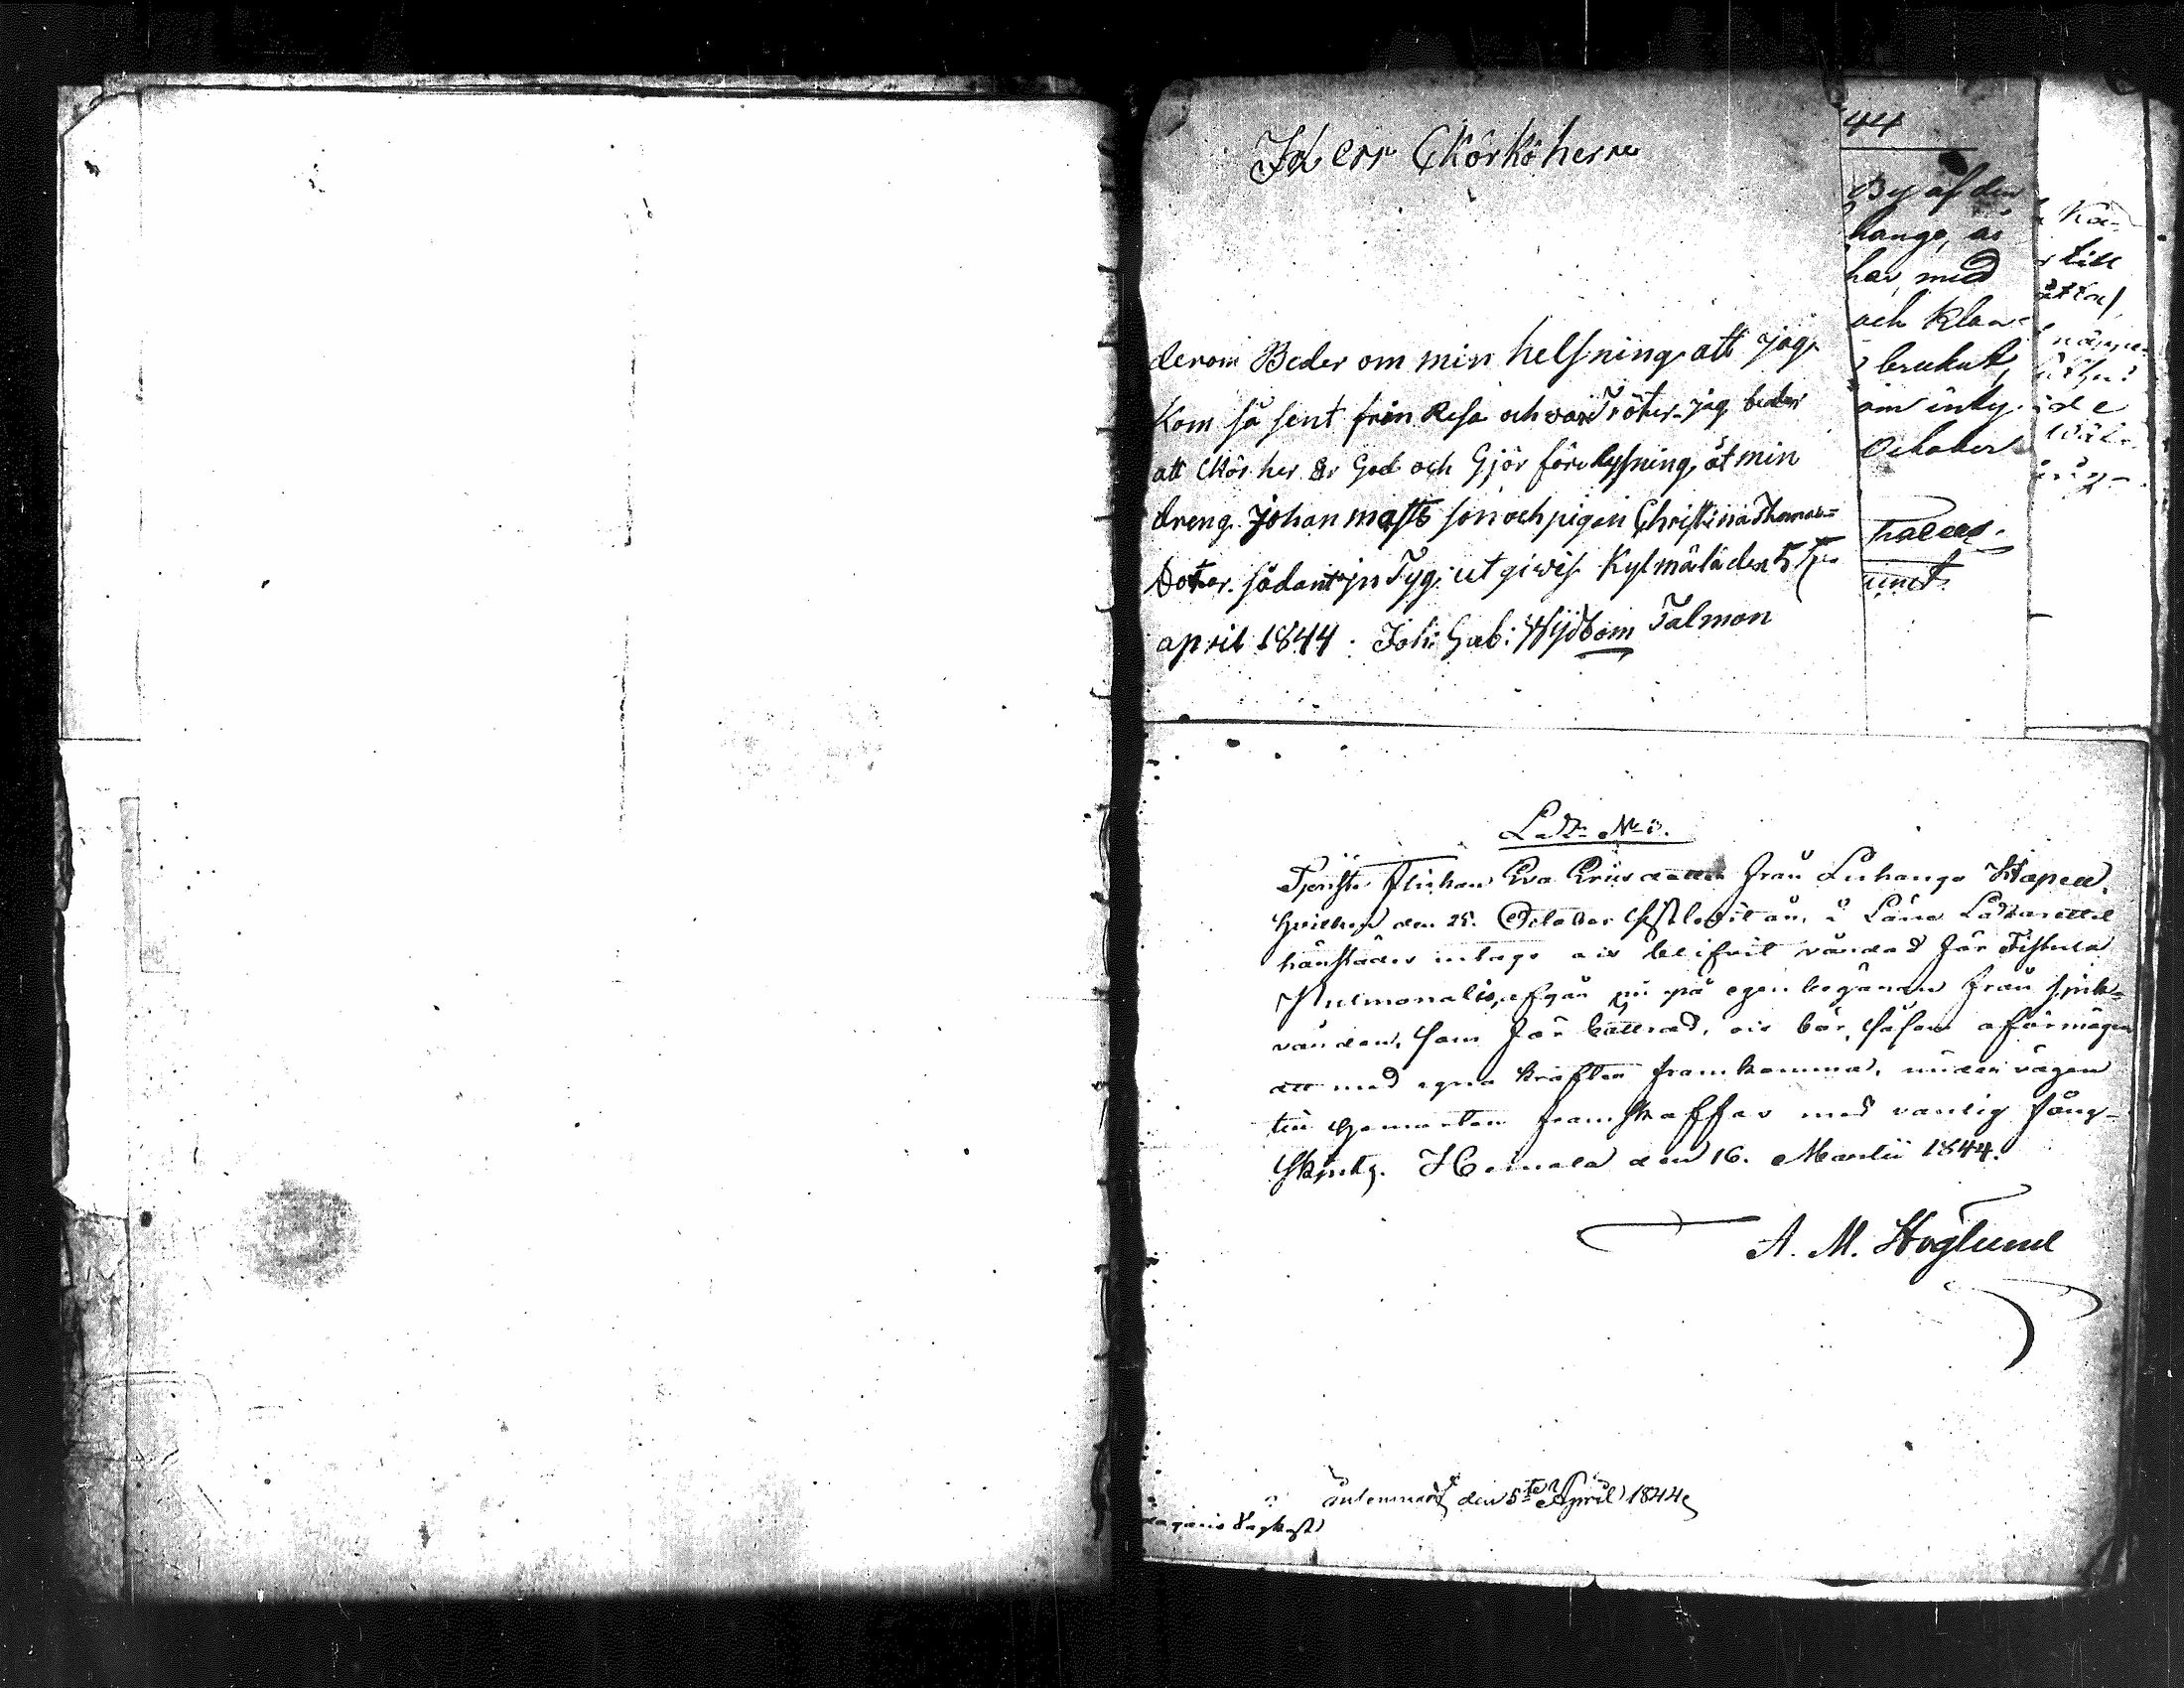 Herr Ckörkö herre
derom Beder om min helsning att jag
Kom så sent från Resa och war Tröter jag beder
att Ckör her är God och Gjör före lysning åt min
dreng Johan matts son och pigan Christina Thomas=
Doter. sådant jn Tyg. ut giwis Kylmälä den 5 
april 1844. Joh: Gab: Nybom Talmon
44
By af den
hango, as
har, med
och klan
brukat,
om
October
till
L. N:o
Tjenste flickan Eva Ericsdotter från Luhango Kapell,
hvilken den 25. October sistledit år, i Läne Lazarettet
härstädes intags och blifvit vårdad för Fistula
Pulmonalis, afgår nu på egen begäran från sjuk=
vården, som för bättrad, och bör, såsom oförmögen
att med egna krafter framkomma, under vägen
till hemorten framskaffas med vanlig fång=
skjuts. Heinola den 16. Martii 1844.
A. M. Höglund
den 5te April 1844